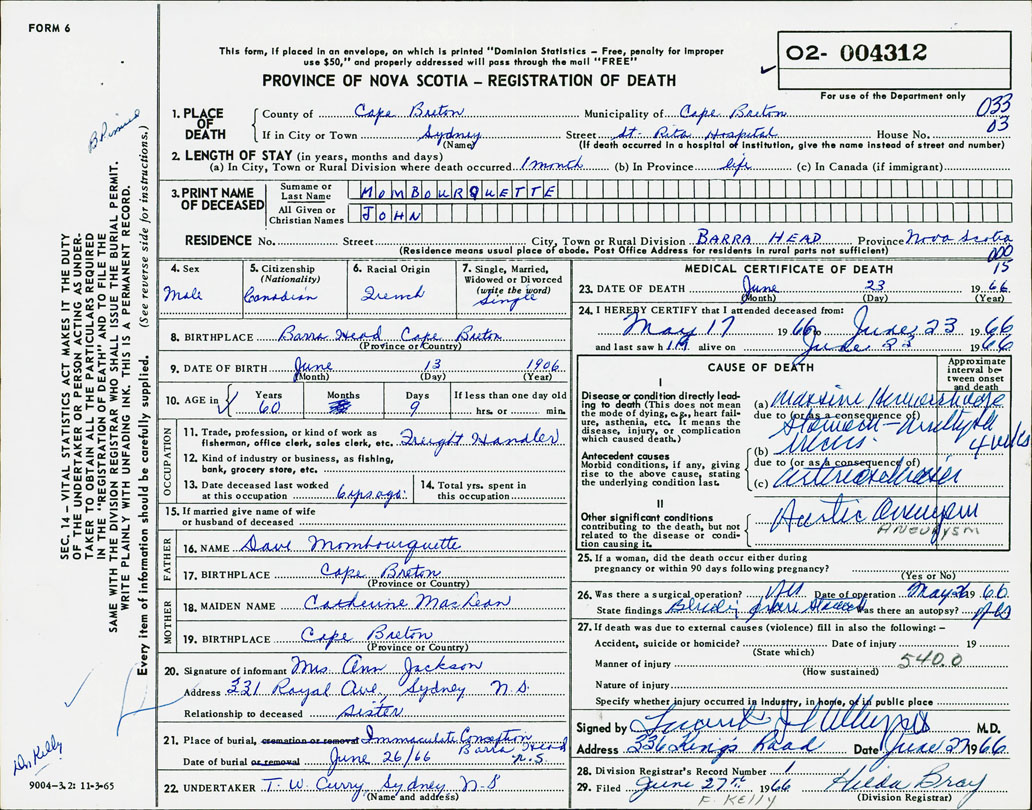 FORM 6
This form, if placed in an envelope, on which is printed "Dominion Statistics – Free, penalty for improper
use $50," and properly addressed will pass through the mail "FREE"
PROVINCE OF NOVA SCOTIA – REGISTRATION OF DEATH
02- 004312
For use of the Department only
033
03
1. PLACE OF DEATH
County of Cape Breton Municipality of Cape Breton
If in City or Town Sydney Street St. Rita Hospital House No.
(Name) (If death occurred in a hospital or institution, give the name instead of street and number)
2. LENGTH OF STAY (in years, months and days)
(a) In City, Town or Rural Division where death occurred 1 month (b) In Province life (c) In Canada (if immigrant)
3. PRINT NAME OF DECEASED
Surname or Last Name MOMBOURQUETTE
All Given or Christian Names JOHN
RESIDENCE No. Street City, Town or Rural Division BARRA HEAD Province Nova Scotia
(Residence means usual place of abode. Post Office Address for residents in rural parts not sufficient)
000
15
4. Sex
Male
5. Citizenship
(Nationality)
Canadian
6. Racial Origin
French
7. Single, Married,
Widowed or Divorced
(write the word)
Single
8. BIRTHPLACE Barra Head Cape Breton
(Province or Country)
9. DATE OF BIRTH June 13 1906
(Month) (Day) (Year)
10. AGE in Years Months Days If less than one day old
60 9 hrs. or min.
OCCUPATION
11. Trade, profession, or kind of work as
fisherman, office clerk, sales clerk, etc. Freight Handler
12. Kind of industry or business, as fishing,
bank, grocery store, etc.
13. Date deceased last worked
at this occupation 6 yrs ago.
14. Total yrs. spent in
this occupation
15. If married give name of wife
or husband of deceased
FATHER
16. NAME Dave Mombourquette
17. BIRTHPLACE Cape Breton
(Province or Country)
MOTHER
18. MAIDEN NAME Catherine MacLean
19. BIRTHPLACE Cape Breton
(Province or Country)
20. Signature of informant Mrs. Ann Jackson
Address 331 Royal Ave, Sydney N.S.
Relationship to deceased Sister
21. Place of burial, cremation or removal Immaculate Conception
Barra Head
Date of burial or removal June 26/66 N.S.
22. UNDERTAKER T. W. Curry, Sydney N-S
(Name and address)
MEDICAL CERTIFICATE OF DEATH
23. DATE OF DEATH June 23 1966
(Month) (Day) (Year)
24. I HEREBY CERTIFY that I attended deceased from:
May 17 1966 to June 23 1966
and last saw him alive on June 23 1966
CAUSE OF DEATH
Approximate
interval between onset
and death
I
Disease or condition directly leading to death (This does not mean
the mode of dying, e.g., heart failure, asthenia, etc. It means the
disease, injury, or complication
which caused death.)
(a) Massive Hemorrhage
due to (or as a consequence of)
Stomach
(b) ulcers. 4 weeks
Antecedent causes
Morbid conditions, if any, giving
rise to the above cause, stating
the underlying condition last.
due to (or as a consequence of)
(c) arteriosclerosis
II
Other significant conditions
contributing to the death, but not
related to the disease or condition causing it.
Aortic Aneurysm
ANEURYSM
25. If a woman, did the death occur either during
pregnancy or within 90 days following pregnancy?
(Yes or No)
26. Was there a surgical operation? yes Date of operation May 26 1966
State findings Bleeding from Stomach Was there an autopsy? yes
27. If death was due to external causes (violence) fill in also the following: –
Accident, suicide or homicide? Date of injury 19
(State which)
Manner of injury 540.0
(How sustained)
Nature of injury
Specify whether injury occurred in industry, in home, or in public place
Signed by M.D.
Address 336 Kings Road Date June 27 1966
28. Division Registrar's Record Number 1
29. Filed June 27th 1966 Hilda Bray
F. KELLY (Division Registrar)
SEC. 14 – VITAL STATISTICS ACT MAKES IT THE DUTY
OF THE UNDERTAKER OR PERSON ACTING AS UNDERTAKER TO OBTAIN ALL THE PARTICULARS REQUIRED
IN THE "REGISTRATION OF DEATH" AND TO FILE THE
SAME WITH THE DIVISION REGISTRAR WHO SHALL ISSUE THE BURIAL PERMIT.
WRITE PLAINLY WITH UNFADING INK. THIS IS A PERMANENT RECORD.
Every item of information should be carefully supplied. (See reverse side for instructions.)
Dr. Kelly
9004-3.2: 11-3-65